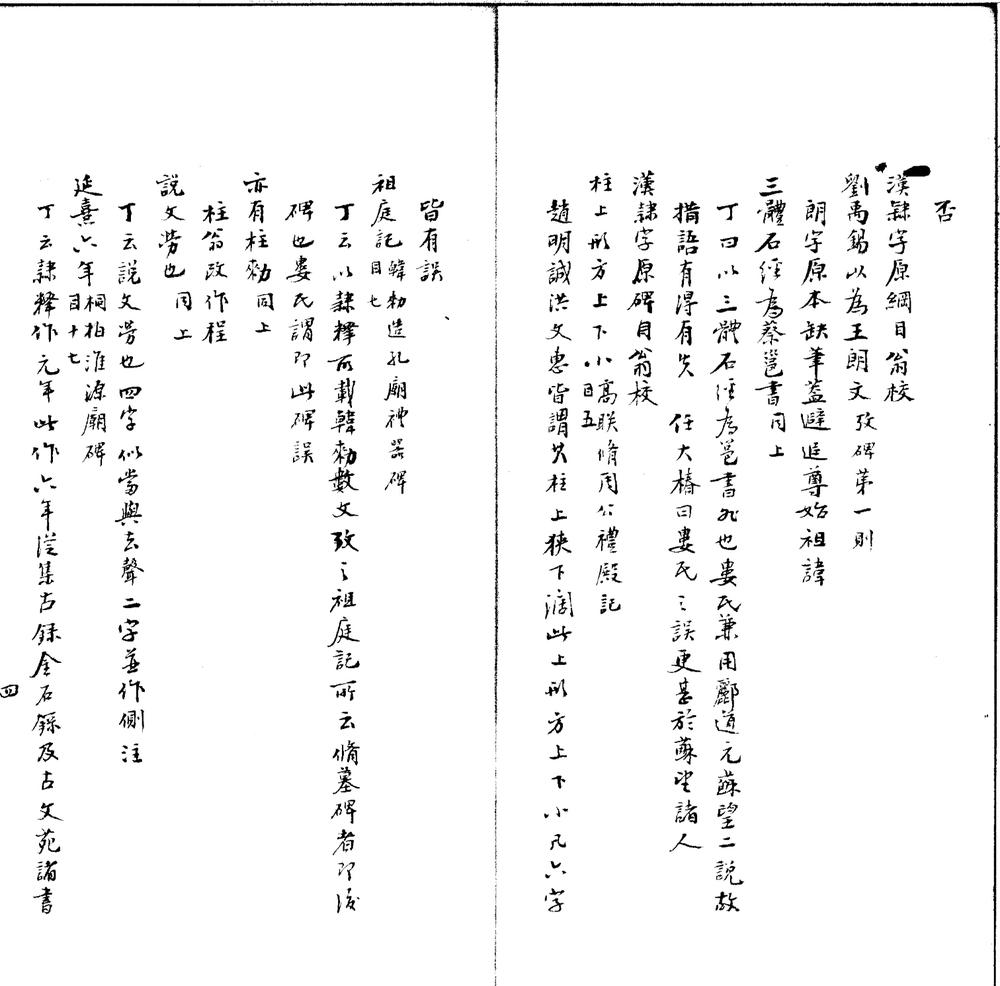 否
漢隸字原綱目翁校
劉禹錫以為王朗文攷碑第一則
朗字原本缺筆蓋避追尊始祖諱
三體石經為蔡邕書同上
丁曰以三體石經為邕書非也婁氏兼用酈道元蘇望二說故
措語有得有失　任大椿曰婁氏之誤更甚於蘇望諸人
漢隸字原碑目翁校
柱上形方上下小高眹脩周公禮殿記目五
趙明誠洪文惠皆謂其柱上狹下濶此上形方上下小凡六字
皆有誤
祖庭記韓勑造孔廟禮器碑目七
丁云以隸釋所載韓勑數文攷之祖庭記所云脩墓碑者即後
碑也婁氏謂即此碑誤
亦有柱勑同上
柱翁改作程
說文勞也同上
丁云說文勞也四字似當與去聲二字並作側注
延熹六年桐柏淮源廟碑目十七
丁云隸釋作元年此作六年從集古錄金石錄及古文苑諸書
四